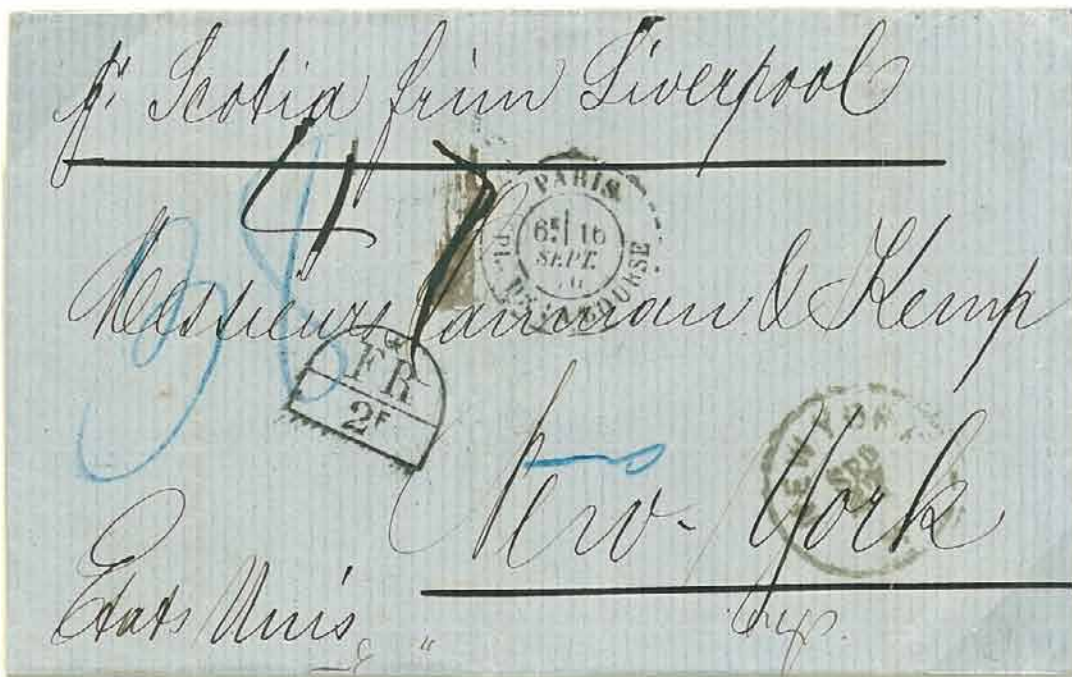 pr Scotia from Liverpool
47
PARIS
6E 16
SEPT.
PL. DE LA BOURSE
Messieurs Lanman & Kemp
FR
2F
NEW YORK
SEP
New-York
Etats Unis